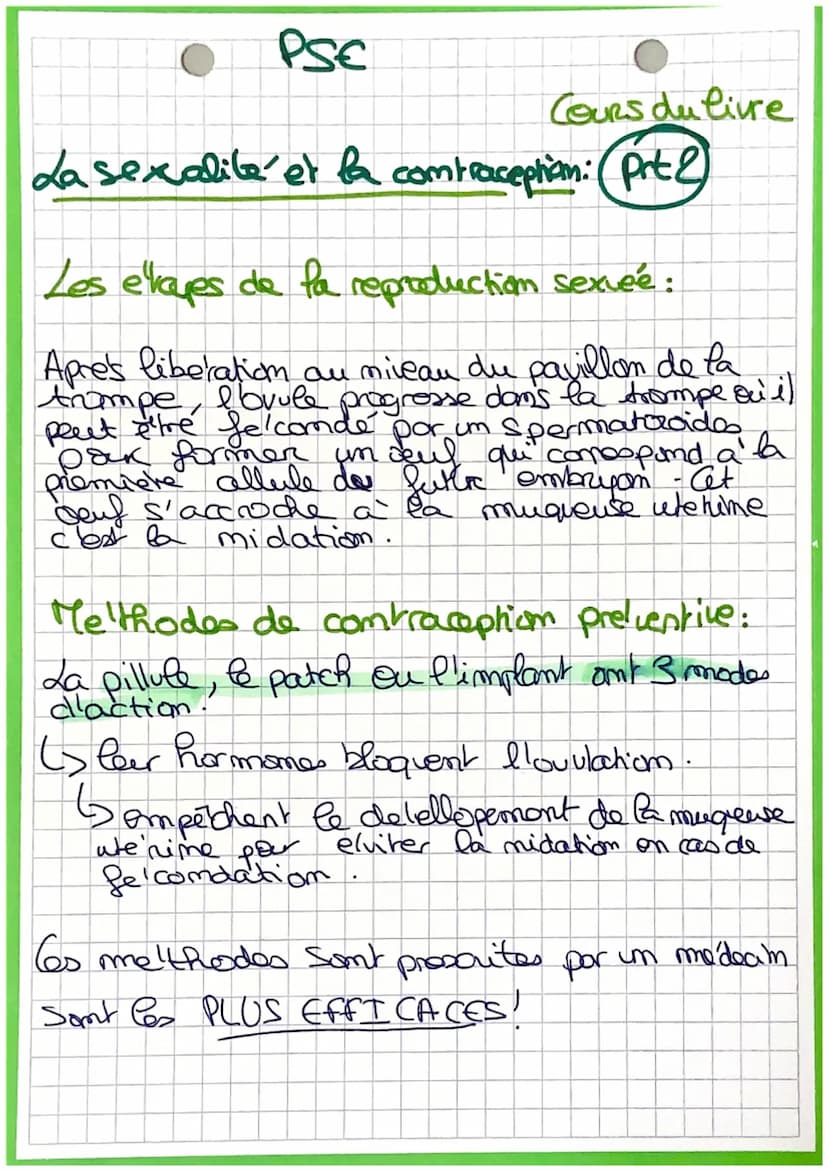 PSE
Cours du livre
La sexalité et la contraception: Prt2
Les étapes de la reproduction sexuée :
Après libération au niveau du pavillon de la
trompe, l'ovule progresse dans la trompe où il
peut être fécondé par un spermatozoïdes
pour former un oeuf qui correspond à la
première cellule du futur embryon. Cet
oeuf s'accroche à la muqueuse utérine
c'est la nidation.
Méthodes de contraception préventive:
La pillule, le patch ou l'implant ont 3 modes
d'action:
↳ leur hormones bloquent l'ovulation.
↳ empêchent le dévellopement de la muqeuse
utérine pour éviter la nidation en cas de
fécondation.
Ces méthodes sont prescrites par un médecin
sont les PLUS EFFICACES!